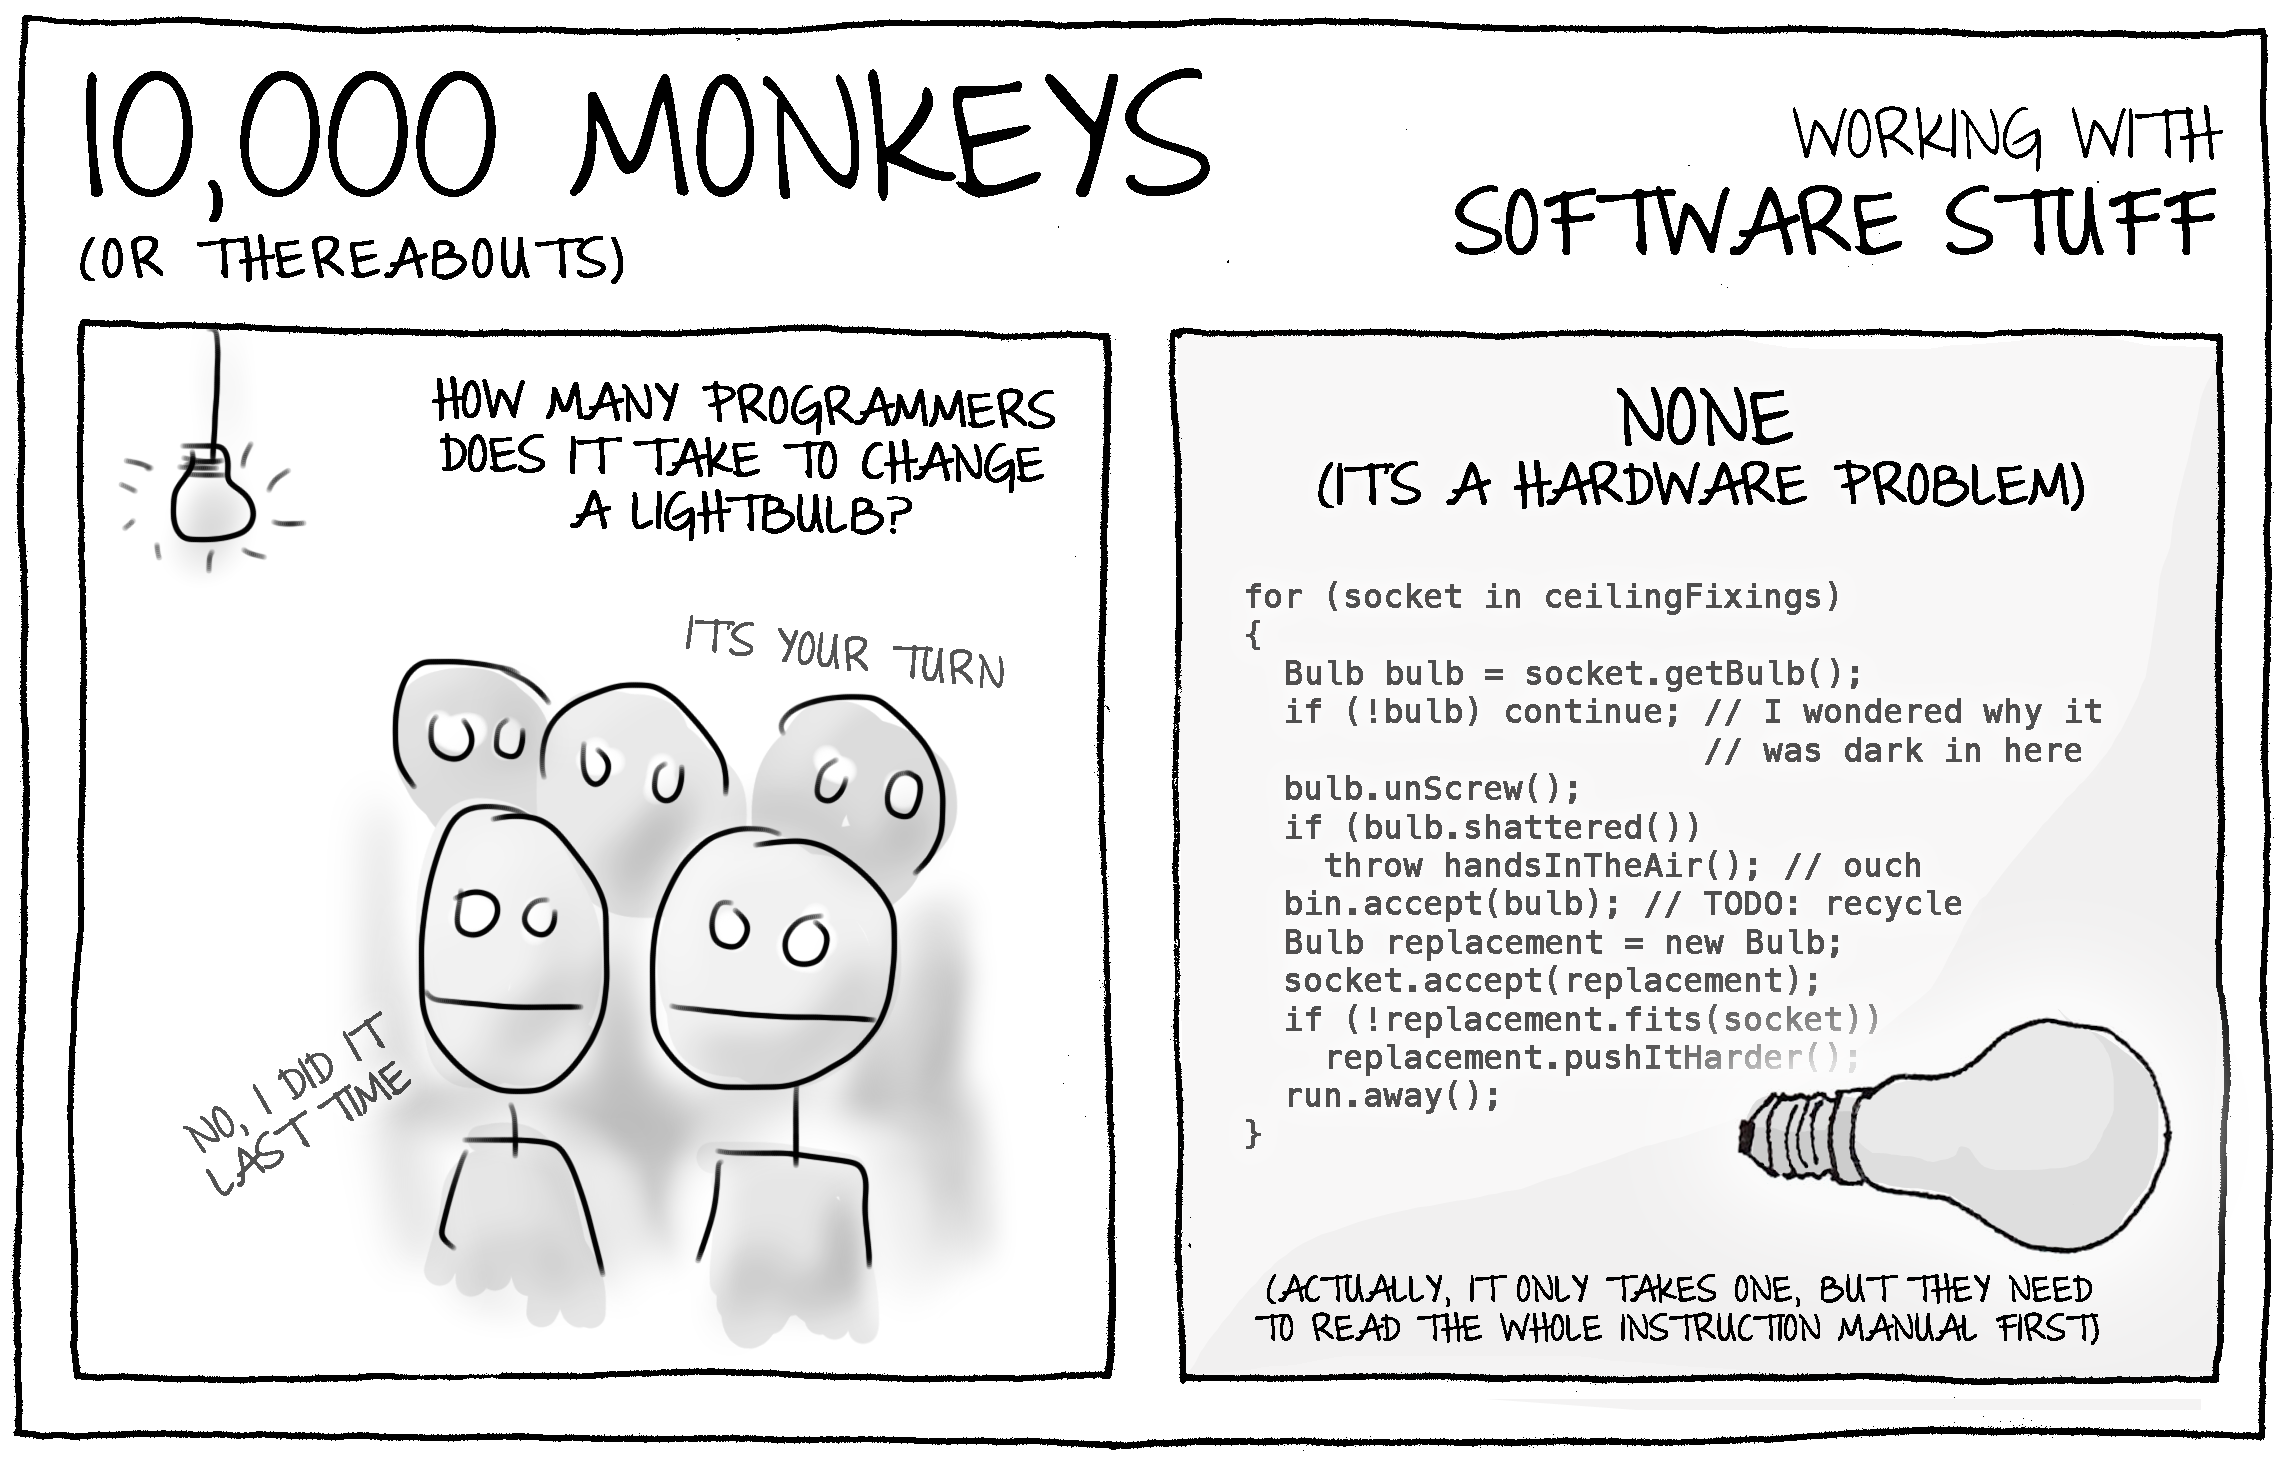 10,000 MONKEYS
(OR THEREABOUTS)
WORKING WITH
SOFTWARE STUFF
HOW MANY PROGRAMMERS
DOES IT TAKE TO CHANGE
A LIGHTBULB?
ITS YOUR TURN
NO, I DID IT
LAST TIME
NONE
(ITS A HARDWARE PROBLEM)
for (socket in ceilingFixings)
{
  Bulb bulb = socket.getBulb();
  if (!bulb) continue; // I wondered why it
                       // was dark in here
  bulb.unScrew();
  if (bulb.shattered())
    throw handsInTheAir(); // ouch
  bin.accept(bulb); // TODO: recycle
  Bulb replacement = new Bulb;
  socket.accept(replacement);
  if (!replacement.fits(socket))
    replacement.pushItHarder();
  run.away();
}
(ACTUALLY, IT ONLY TAKES ONE, BUT THEY NEED
TO READ THE WHOLE INSTRUCTION MANUAL FIRST)